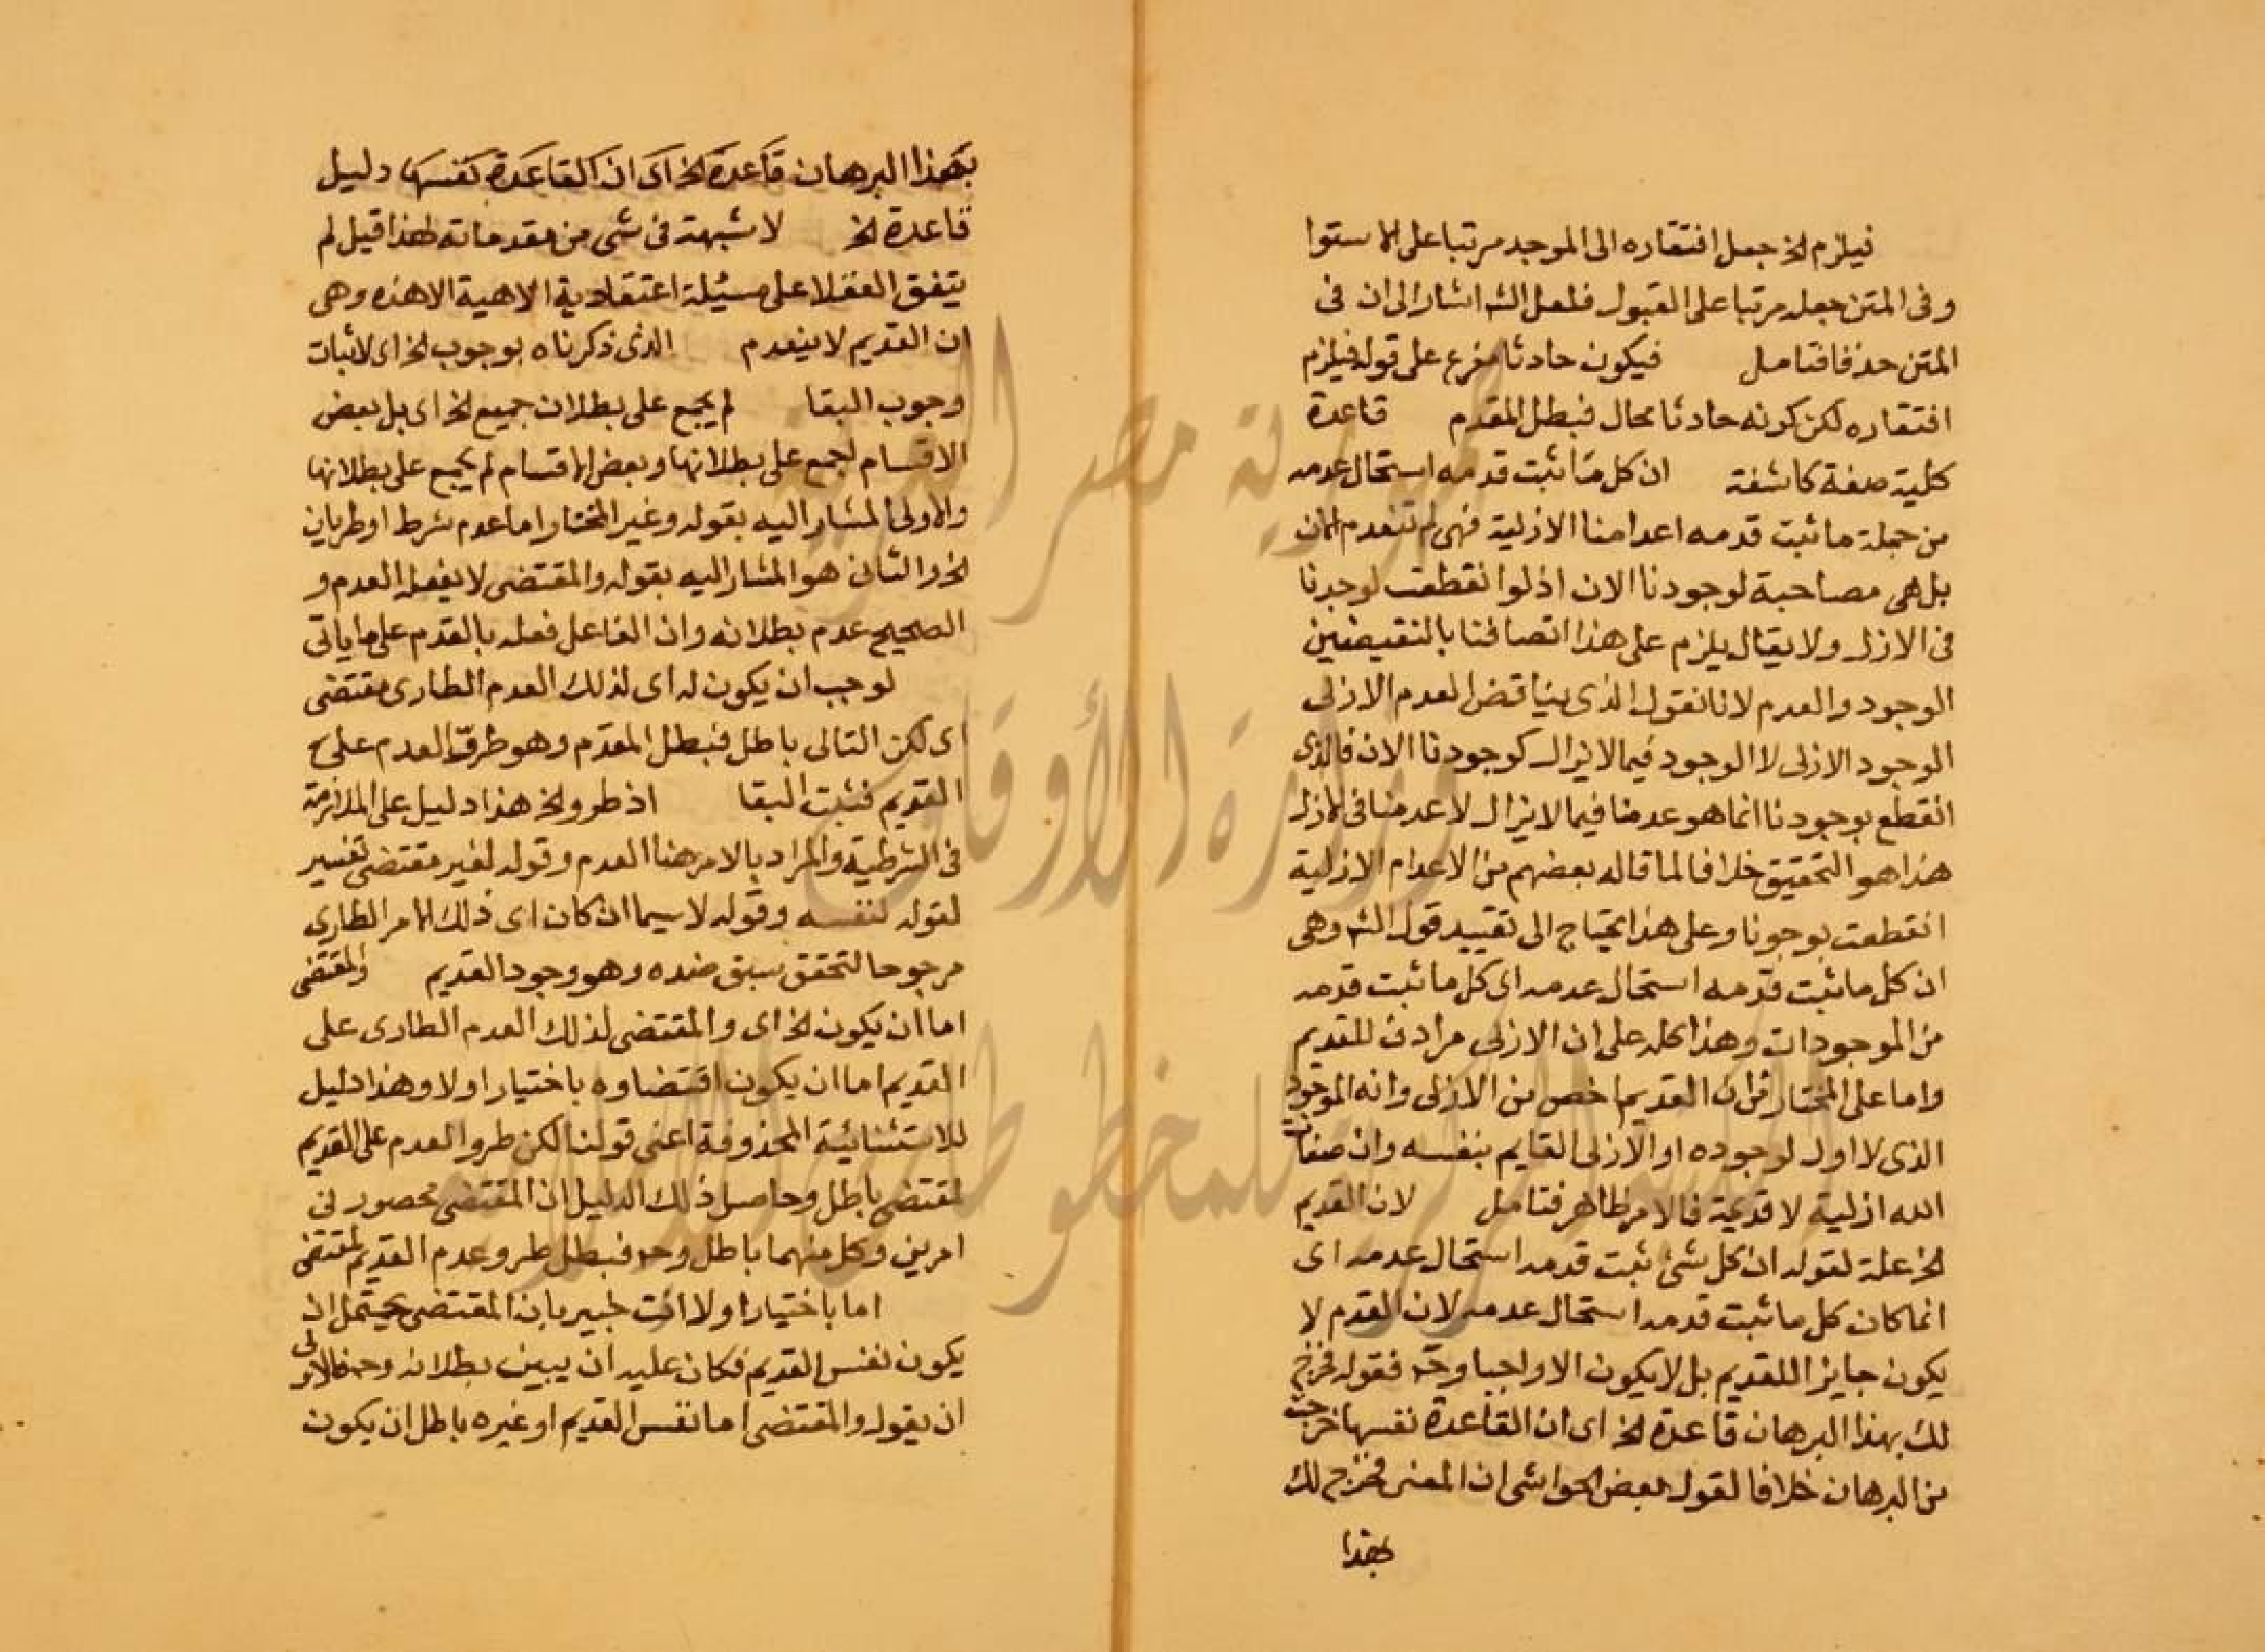 فيلزم الخ جعل افتقاره الى الموجد مرتبا على الاستوا
وفى المتن جعله مرتبا على القبول فلعل الشـ اشار الى ان فى
المتن حذفا فتامل فيكون حادثا مفرع على قوله فيلزم
افتقاره لكن كونه حادثا محال فبطل المقدم قاعدة
كلية صفة كاشفة ان كل ما ثبت قدمه استحال عدمه
من جملة ما ثبت قدمه اعدامنا الازلية فهى لم تنعدم الان
بل هى مصاحبة لوجودنا الان اذ لو انقطعت لوجدنا
فى الازل ولا يقال يلزم على هذا اتصافنا بالنقيضين
الوجود والعدم لانا نقول الذى يناقض العدم الازلى
الوجود الازلى لا الوجود فيما لا يزال كوجودنا الان فالذى
انقطع بوجودنا انما هو عدمنا فيما لا يزال لا عدمنا فى الازل
هذا هو التحقيق خلافا لما قاله بعضهم من الاعدام الازلية
انقطعت بوجونا وعلى هذا يحتاج الى تقييد قول الشـ وهى
ان كل ما ثبت قدمه استحال عدمه اى كل ما ثبت قدمه
من الموجودات وهذا كله على ان الازلى مرادف للقديم
واما على المختار من ان القديم اخص من الازلى وانه الموجود
الذى لا اول لوجوده او الازلى القايم بنفسه وان صفات
الله ازلية لا قديمة فالامر ظاهر فتامل لان القديم
الخ علة لقوله ان كل شئ ثبت قدمه استحال عدمه اى
انما كان كل ما ثبت قدمه استحال عدمه لان القدم لا
يكون جايزا للقديم بل لا يكون الا واجبا وحـ فقوله فخرج
لك بهذا البرهان قاعدة الخ اى ان القاعدة نفسها خرجت
من البرهان خلافا لقول بعض الحواشى ان المعنى فخرج لك
بهذا
بهذا البرهان قاعدة الخ اى ان القاعدة نفسها دليل
قاعدة الخ لا شبهة فى شى من مقدماته لهذا قيل لم
يتفق العقلا على مسئلة اعتقادية الاهية الا هذه وهى
ان القديم لا ينعدم الذى ذكرناه بوجوب الخ اى لاثبات
وجوب البقا لم يجمع على بطلان جميع الخ اى بل بعض
الاقسام اجمع على بطلانها وبعض الاقسام لم يجمع على بطلانها
والاولى المشار اليه بقوله وغير المختار اما عدم شرط او طريان
الخ والثانى هو المشار اليه بقوله والمقتضى لا يفعل العدم و
الصحيح عدم بطلانه وان الفاعل فعله بالقدم على ما ياتى
لوجب ان يكون له اى لذلك العدم الطارى مقتضى
اى لكن التالى باطل فبطل المقدم وهو طروّ العدم على
القديم فثبت البقا اذ طرو الخ هذا دليل على الملازمة
فى الشرطية والمراد بالامر هنا العدم وقوله لغير مقتضى تفسير
لقوله لنفسه وقوله لا سيما ان كان اى ذلك الامر الطارى
مرجوحا لتحقق سبق ضده وهو وجود القديم والمقتضى
اما ان يكون الخ اى والمقتضى لذلك العدم الطارى على
القديم اما ان يكون اقتضاوه باختيار اولا وهذا دليل
للاستثنائية المحذوفة اعنى قولنا لكن طرو العدم على القديم
لمقتضى باطل وحاصل ذلك الدليل ان المقتضى محصور فى
امرين وكل منهما باطل وحـ فبطل طرو عدم القديم لمقتضى
اما باختيار اولا انت خبير بان المقتضى يحتمل ان
يكون نفس القديم فكان عليه ان يبين بطلانه وحـ فالاولى
ان يقول والمقتضى اما نفس القديم او غيره باطل ان يكون
جمهورية مصر العربية
وزارة الأوقاف